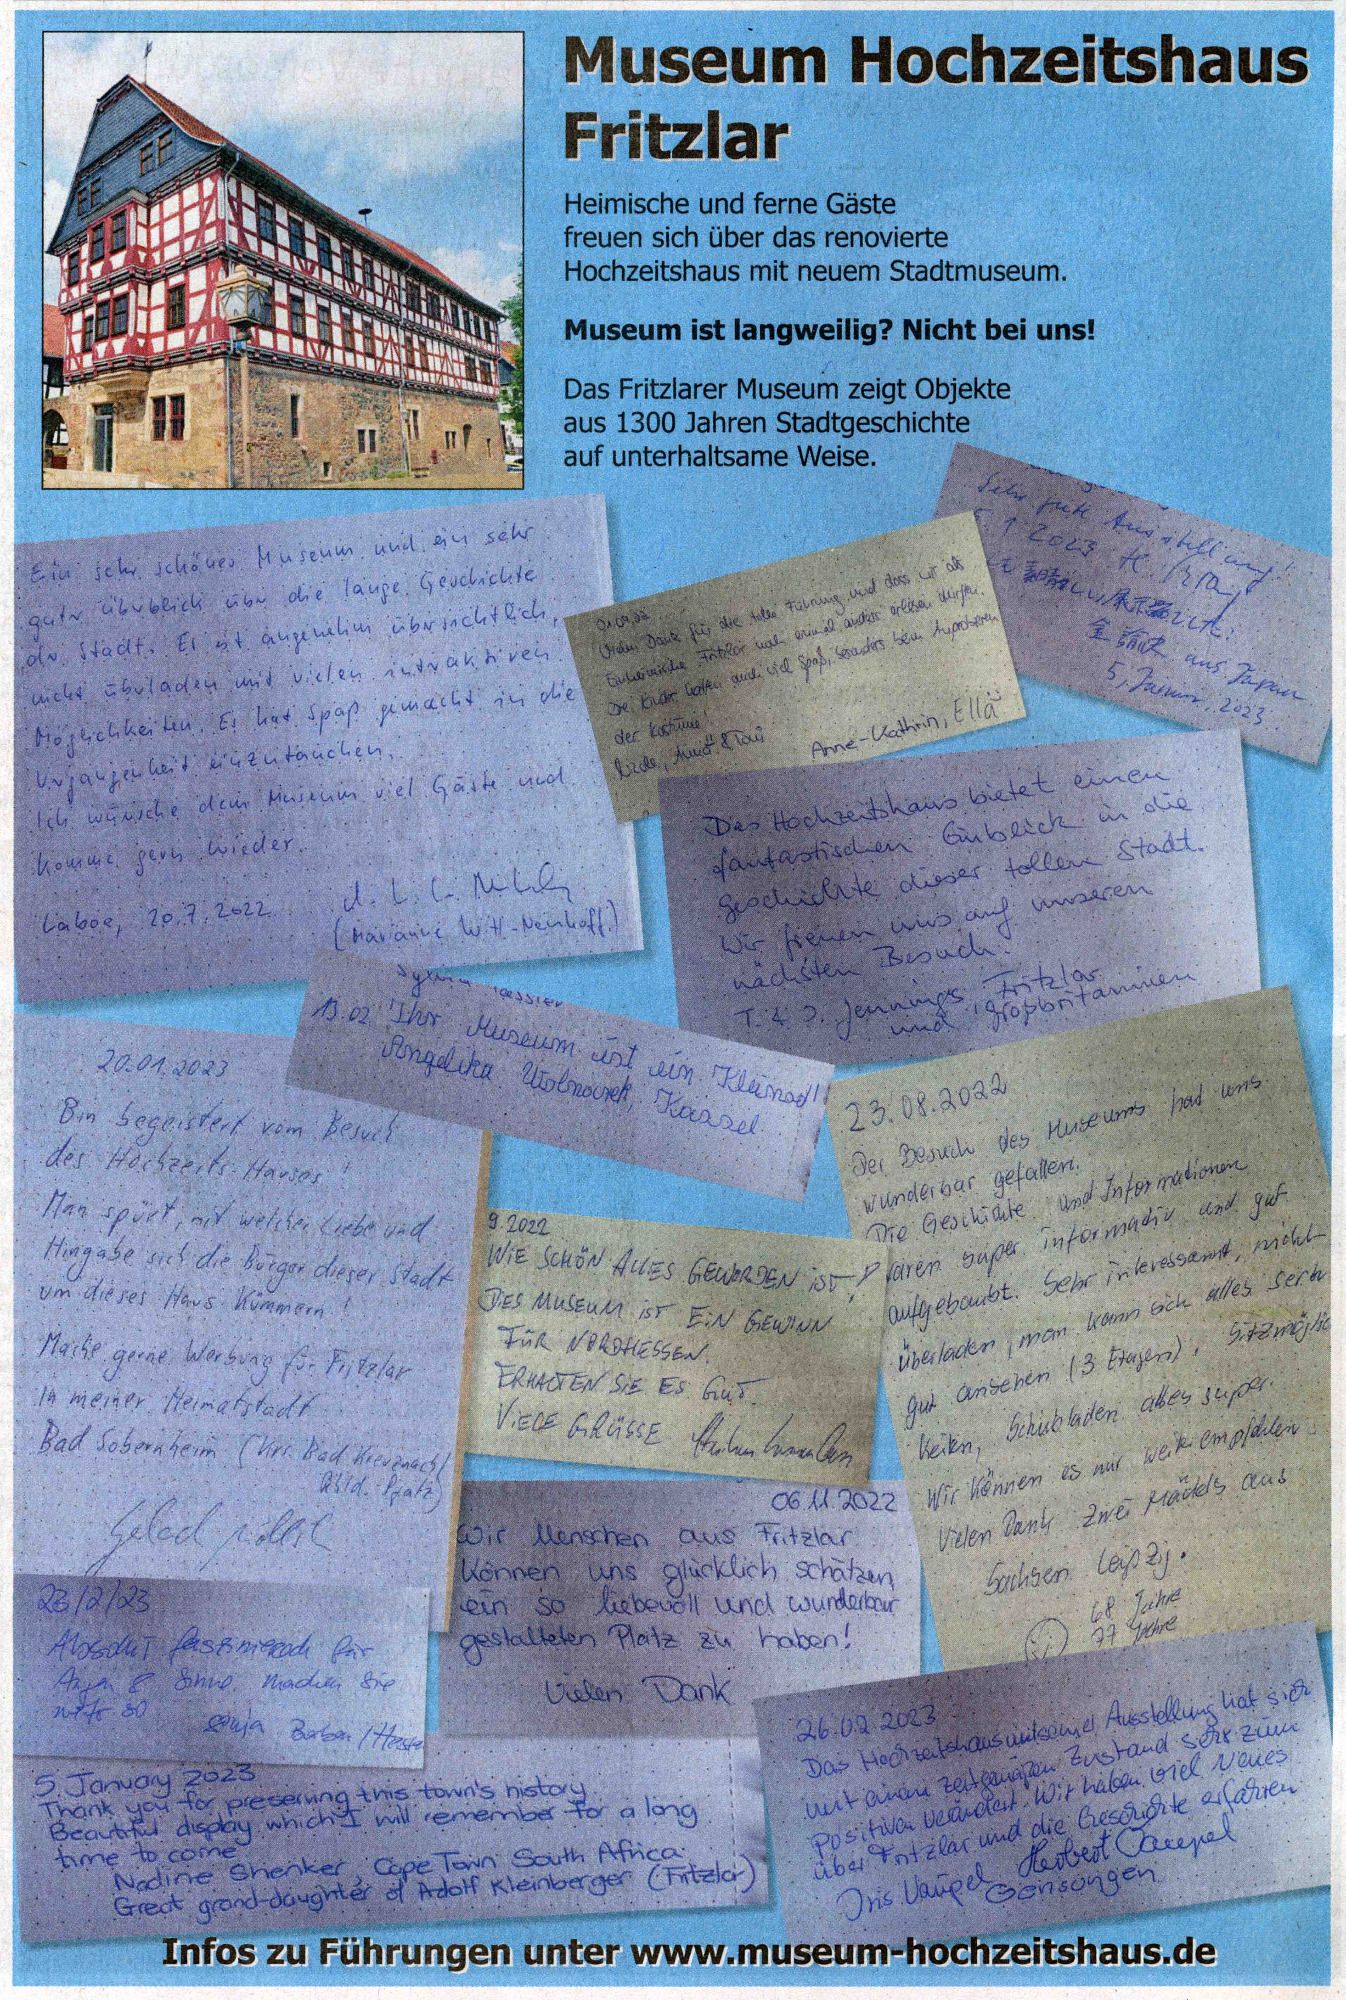 Museum Hochzeitshaus
Fritzlar
Heimische und ferne Gäste
freuen sich über das renovierte
Hochzeitshaus mit neuem Stadtmuseum.
Museum ist langweilig? Nicht bei uns!
Das Fritzlarer Museum zeigt Objekte
aus 1300 Jahren Stadtgeschichte
auf unterhaltsame Weise.
Ein sehr schönes Museum und ein sehr
guter Überblick über die lange Geschichte
der Stadt. Es ist angenehm übersichtlich,
nicht überladen mit vielen interaktiven
Möglichkeiten. Es hat Spaß gemacht in die
Vergangenheit einzutauchen.
Ich wünsche dem Museum viel Gäste und
komme gern wieder.
Laboe, 20.7.2022
(Marianne
Vielen Dank für die tolle Führung und dass wir als
Einheimische Fritzlar noch einmal anders erleben durften.
Die Kinder hatten auch viel Spaß, besonders beim Anprobieren
der Kostüme!
Anne-Kathrin, Ella
Sehr gute Ausstellung!
5.1.2023
aus Japan
5, Januar, 2023
Das Hochzeitshaus bietet einen
fantastischen Einblick in die
Geschichte dieser tollen Stadt.
Wir freuen uns auf unseren
nächsten Besuch.
T. & J. Jennings Fritzlar
und Großbritannien
13.02. Ihr Museum ist ein Kleinod!
Angelika Kassel
20.01.2023
Bin begeistert vom Besuch
des Hochzeits-Hauses!
Man spürt, mit welcher Liebe und
Hingabe sich die Bürger dieser Stadt
um dieses Haus kümmern!
Mache gerne Werbung für Fritzlar
in meiner Heimatstadt
Bad Sobernheim (Krs. Bad Kreuznach/
Rhld. Pfalz)
23.08.2022
Der Besuch des Museums hat uns
wunderbar gefallen.
Die Geschichte und Informationen
waren super informativ und gut
aufgebaubt. Sehr interessant, nicht
überladen, man kann sich alles sehr
gut ansehen (3 Etagen). Sitzmöglich
keiten, Schubladen alles super.
Wir können es nur weiterempfehlen
Vielen Dank zwei Mädels aus
Sachsen Leipzig.
68 Jahre
77 Jahre
9.2022
WIE SCHÖN ALLES GEWORDEN IST!
DES MUSEUM IST EIN GEWINN
FÜR NORDHESSEN.
ERHALTEN SIE ES GUT.
VIELE GRÜSSE
06.11.2022
Wir Menschen aus Fritzlar
können uns glücklich schätzen
ein so liebevoll und wunderbar
gestalteten Platz zu haben!
Vielen Dank
23/2/23
Absolut faszinierend für
Augen & Sinne. Machen Sie
weiter so
5 January 2023
Thank you for preserving this town's history.
Beautiful display which I will remember for a long
time to come
Nadine Shenker, Cape Town South Africa
Great grand-daughter of Adolf Kleinberger (Fritzlar)
26.02.2023
Das Hochzeitshaus mitsamt Ausstellung hat sich
mit einem zeitgemäßen Zustand sehr zum
Positiven verändert. Wir haben viel Neues
über Fritzlar und die Geschichte erfahren
Iris Vaupel Herbert Vaupel
Gensungen
Infos zu Führungen unter www.museum-hochzeitshaus.de